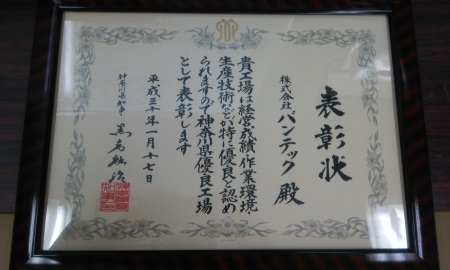 表彰状
株式会社 パンテック 殿
貴工場は経営成績、作業環境、
生産技術などが特に優良と認め
られますので神奈川県優良工場
として表彰します
平成三十年一月十七日
神奈川県知事 黒岩祐治